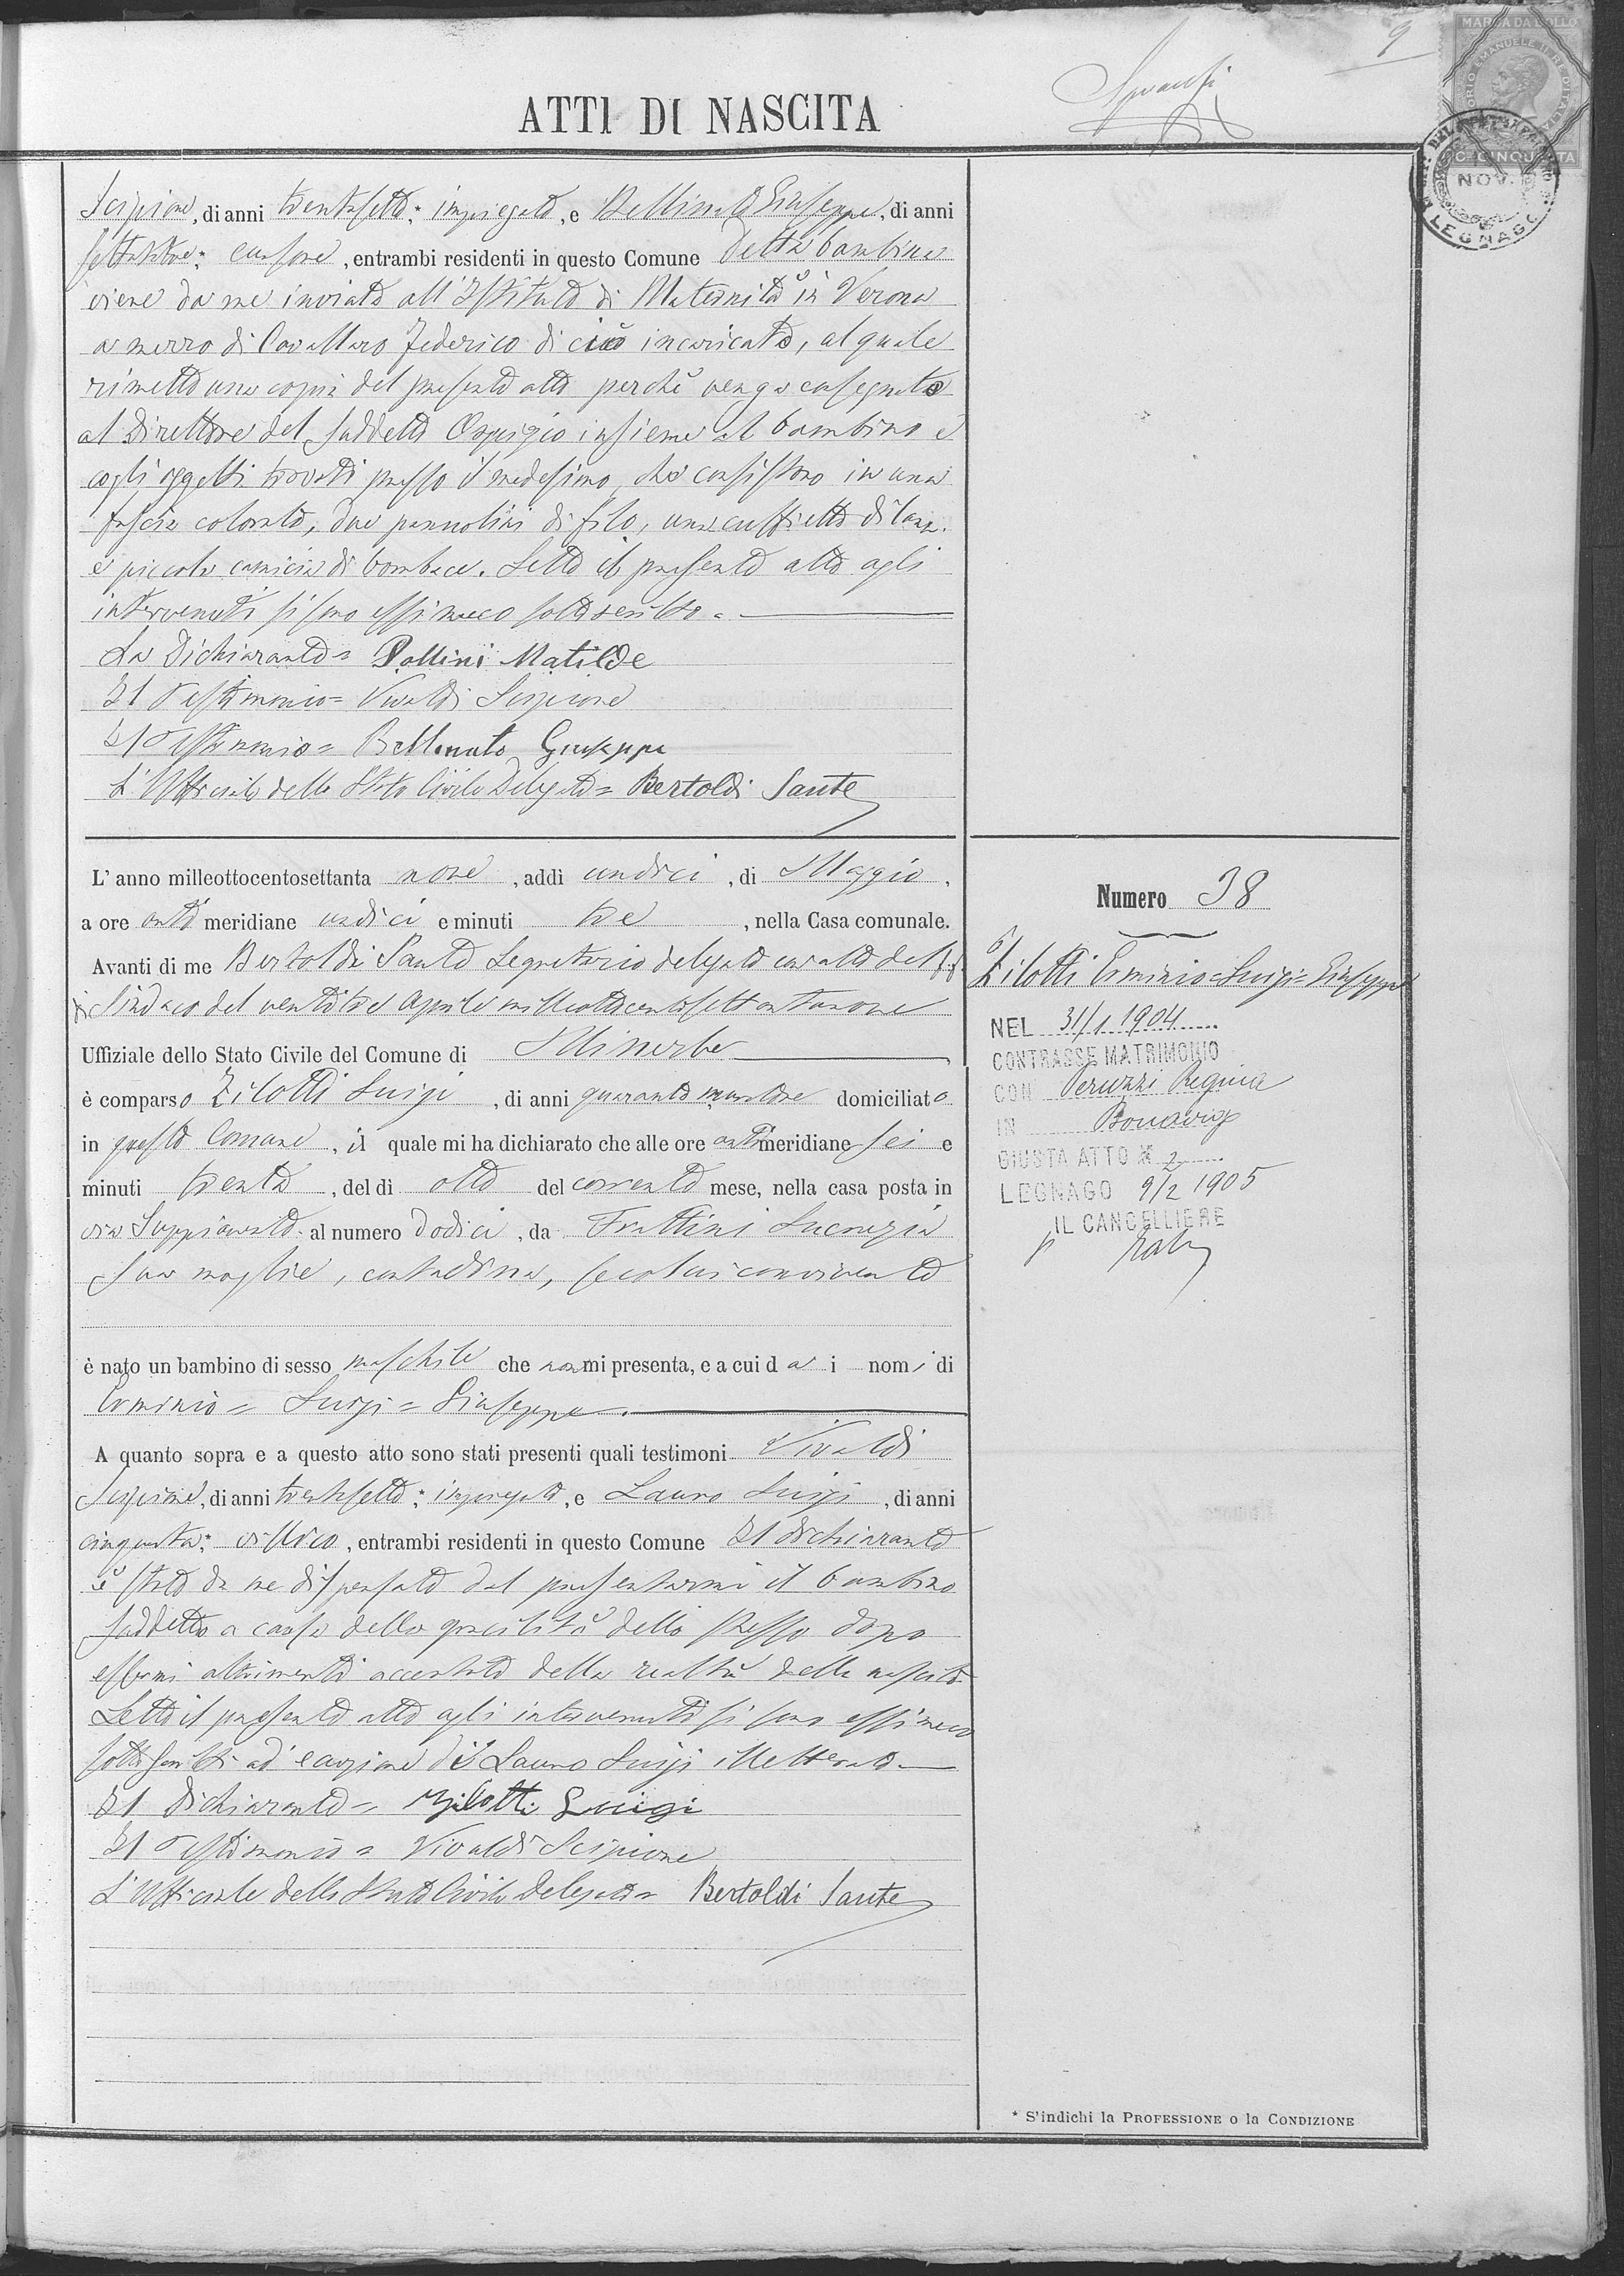 9
MARCA DA BOLLO
ATTI DI NASCITA
C. CINQUANTA
NOV.
LEGNAGO
Scipione, di anni trentasette; impiegato, e Bellinato Giuseppe, di anni
cursore, entrambi residenti in questo Comune Detta bambina
viene da me inviato all'Istituto di Maternità in Verona
a mezzo di Cavallaro Federico di ciò incaricato, al quale
rimetto una copia del presente atto perchè venga consegnato
al Direttore del suddetto Ospizio insieme al bambino e
cogli oggetti trovati presso il medesimo, che consistono in una
fascia colorata, due pannolini di filo, una cuffietta di lana
e piccola camicia di bombace. Letto il presente atto agli
intervenuti si sono essi meco sottoscritto.
La Dichiarante = Pollini Matilde
Il Testimonio = Vivaldi Scipione
Il Testimonio = Bellinato Giuseppe
L'Ufficiale dello Stato Civile Delegato = Bertoldi Sante
L'anno milleottocentosettanta nove, addì undici, di Maggio,
a ore anti meridiane undici e minuti tre, nella Casa comunale.
Avanti di me Bertoldi Sante Segretario delegato con atto del
Sindaco del ventitre Aprile milleottocentosettantanove
Uffiziale dello Stato Civile del Comune di Minerbe
è comparso Zilotti Luigi, di anni quaranta domiciliato
in questo Comune, il quale mi ha dichiarato che alle ore antimeridiane sei e
minuti trenta, del dì otto del corrente mese, nella casa posta in
via al numero dodici, da Frattini Lucrezia
sua moglie, contadina, seco lui convivente
è nato un bambino di sesso maschile che non mi presenta, e a cui da i nomi di
Erminio = Luigi = Giuseppe.
A quanto sopra e a questo atto sono stati presenti quali testimoni Vivaldi
Scipione, di anni trentasette; impiegato, e Lauro Luigi, di anni
cinquanta; villico, entrambi residenti in questo Comune Il dichiarante
è stato da me dispensato dal presentarmi il bambino
suddetto a causa della gracilità dello stesso dopo
essermi altrimenti accertato della realtà della nascita
Letto il presente atto agli intervenuti si sono essi meco
sottoscritti ad eccezione di Lauro Luigi illetterato
Il Dichiarante = Zilotti Luigi
Il Testimonio = Vivaldi Scipione
L'Ufficiale dello Stato Civile Delegato = Bertoldi Sante
Numero 38
Zilotti Erminio = Luigi = Giuseppe
NEL 31/1 1904
CONTRASSE MATRIMONIO
CON Peruzzi Regina
IN Bonavigo
GIUSTA ATTO N 2
LEGNAGO 9/2 1905
IL CANCELLIERE
* S'indichi la PROFESSIONE o la CONDIZIONE